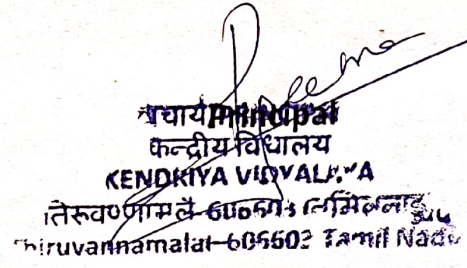 Principal
केन्द्रीय विद्यालय
KENDRIYA VIDYALAYA
तिरुवण्णामलै
Thiruvannamalai-606603 Tamil Nadu